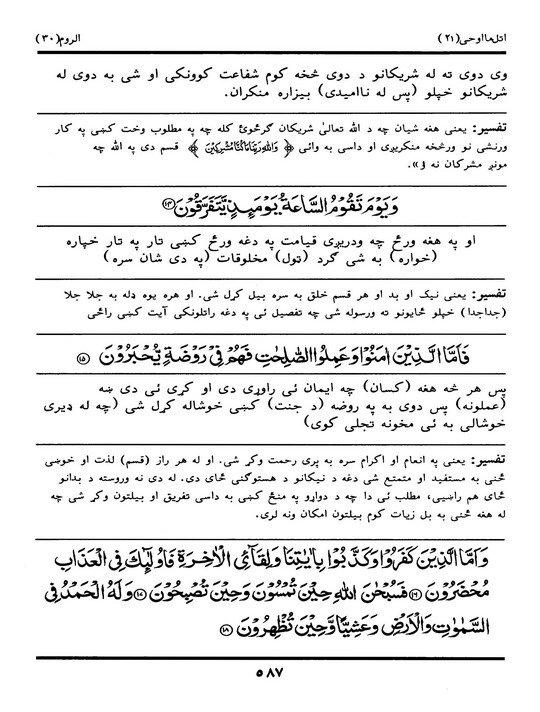 اتل ما اوحی (۲۱) الروم (۳۰)
وی دوی ته له شریکانو د دوی څخه کوم شفاعت کوونکی او شی به دوی له
شریکانو خپلو (پس له ناامیدی) بیزاره منکران.
تفسیر: یعنی هغه شیان چه د الله تعالیٰ شریکان ګرځوئ کله چه په مطلوب وخت کښی په کار
ورنشی نو ورڅخه منکریږی او داسی به وائی ﴿ وَاللهِ رَبِّنَا مَا كُنَّا مُشْرِكِيْنَ ﴾ قسم دی په الله چه
مونږ مشرکان نه وو».
وَيَوْمَ تَقُوْمُ السَّاعَةُ يَوْمَئِذٍ يَّتَفَرَّقُوْنَ ﴿۱۴﴾
او په هغه ورځ چه ودریږی قیامت په دغه ورځ کښی تار په تار خپاره
(خواره) به شی ګرد (ټول) مخلوقات (په دی شان سره)
تفسیر: یعنی نیک او بد او هر قسم خلق به سره بیل کړل شی. او هره یوه ډله به جلا جلا
(جداجدا) خپلو ځایونو ته ورسوله شی چه تفصیل ئی په دغه راتلونکی آیت کښی راځی
فَاَمَّا الَّذِيْنَ اٰمَنُوْا وَعَمِلُوا الصّٰلِحٰتِ فَهُمْ فِيْ رَوْضَةٍ يُّحْبَرُوْنَ ﴿۱۵﴾
پس هر څه هغه (کسان) چه ایمان ئی راوړی دی او کړی ئی دی ښه
(عملونه) پس دوی به په روضه (د جنت) کښی خوشاله کړل شی (چه له ډیری
خوشالی به ئی مخونه تجلی کوی)
تفسیر: یعنی په انعام او اکرام سره به پری رحمت وکړ شی. او له هر راز (قسم) لذت او خوښی
څخه به مستفید او متمتع شی دغه د نیکانو د هستوګنی ځای دی. له دی نه وروسته د بدانو
ځای هم راښیی، مطلب ئی دا چه د دواړو په منځ کښی به داسی تفریق او بیلتون وکړ شی چه
له هغه څخه به بل زیات کوم بیلتون امکان ونه لری.
وَاَمَّا الَّذِيْنَ كَفَرُوْا وَكَذَّبُوْا بِاٰيٰتِنَا وَلِقَآئِ الْاٰخِرَةِ فَاُولٰٓئِكَ فِي الْعَذَابِ
مُحْضَرُوْنَ ﴿۱۶﴾ فَسُبْحٰنَ اللهِ حِيْنَ تُمْسُوْنَ وَحِيْنَ تُصْبِحُوْنَ ﴿۱۷﴾ وَلَهُ الْحَمْدُ فِي
السَّمٰوٰتِ وَالْاَرْضِ وَعَشِيًّا وَّحِيْنَ تُظْهِرُوْنَ ﴿۱۸﴾
۵۸۷